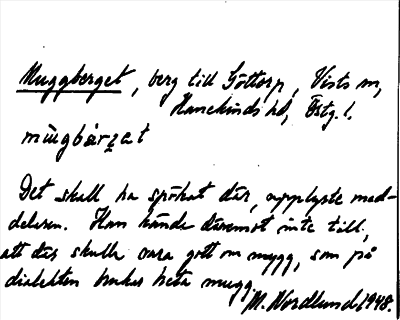 Muggberget, berg till Göttorp, Vists sn,
Hanekinds hd, Östg. l.
mùgbår̥ʒ̥et
Det skall ha spökat där, upplyste med-
delaren. Han kände däremot inte till,
att där skulle vara gott om mygg, som på
dialekten brukar heta mugg.
M. Nordlund 1948.